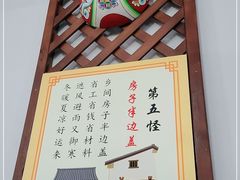 第五怪
房子半边盖
乡间房子半边盖
省工省钱省材料
进风避雨又御寒
冬暖夏凉好运来